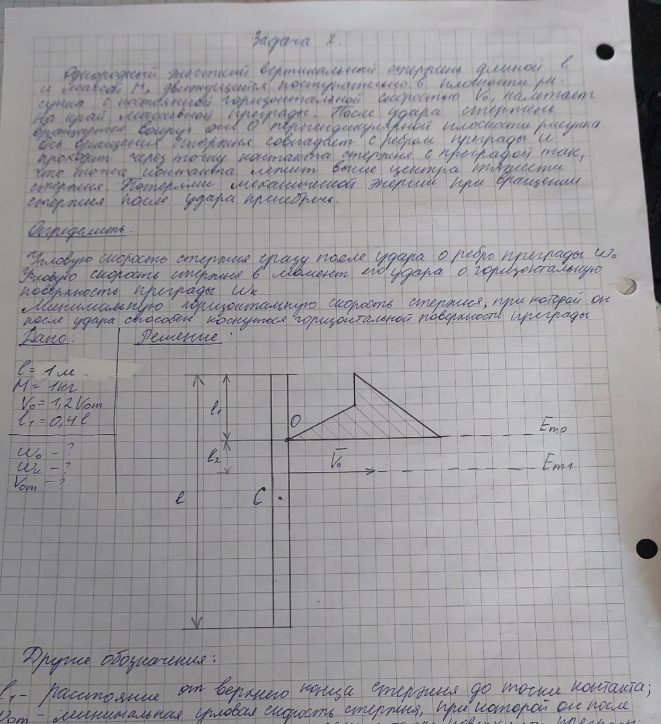 Задача 2.
Однородный жесткий вертикальный стержень длиной l
и массой M, движущийся поступательно в плоскости ри-
сунка с постоянной горизонтальной скоростью V₀, налетает
на край массивной преграды. После удара стержень
вращается вокруг оси O перпендикулярной плоскости рисунка.
Ось вращения стержня совпадает с ребром преграды и
проходит через точку контакта стержня с преградой так,
что точка контакта лежит выше центра тяжести
стержня. Потерями механической энергии при вращении
стержня после удара пренебречь.
Определить:
Угловую скорость стержня сразу после удара о ребро преграды ω₀
Угловую скорость стержня в момент его удара о горизонтальную
поверхность преграды ωк
Минимальную горизонтальную скорость стержня, при которой он
после удара способен коснуться горизонтальной поверхности преграды
Дано: Решение:
l = 1м
M = 1кг
V₀ = 1,2 Vom
l₁ = 0,4l
ω₀ - ?
ωк - ?
Vom - ?
l₁
O
Eп0
l₂
V₀
Eп1
l
C
Другие обозначения:
l₁ - расстояние от верхнего конца стержня до точки контакта;
Vom - минимальная угловая скорость стержня, при которой он после